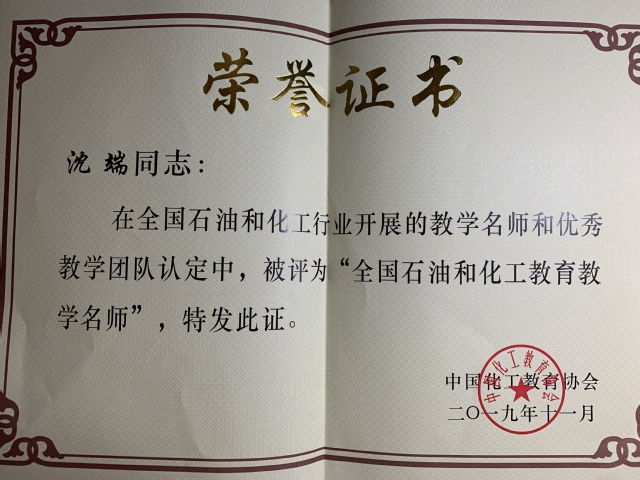 荣誉证书
沈端同志：
在全国石油和化工行业开展的教学名师和优秀
教学团队认定中，被评为“全国石油和化工教育教
学名师”，特发此证。
中国化工教育协会
二〇一九年十一月
中国化工教育协会